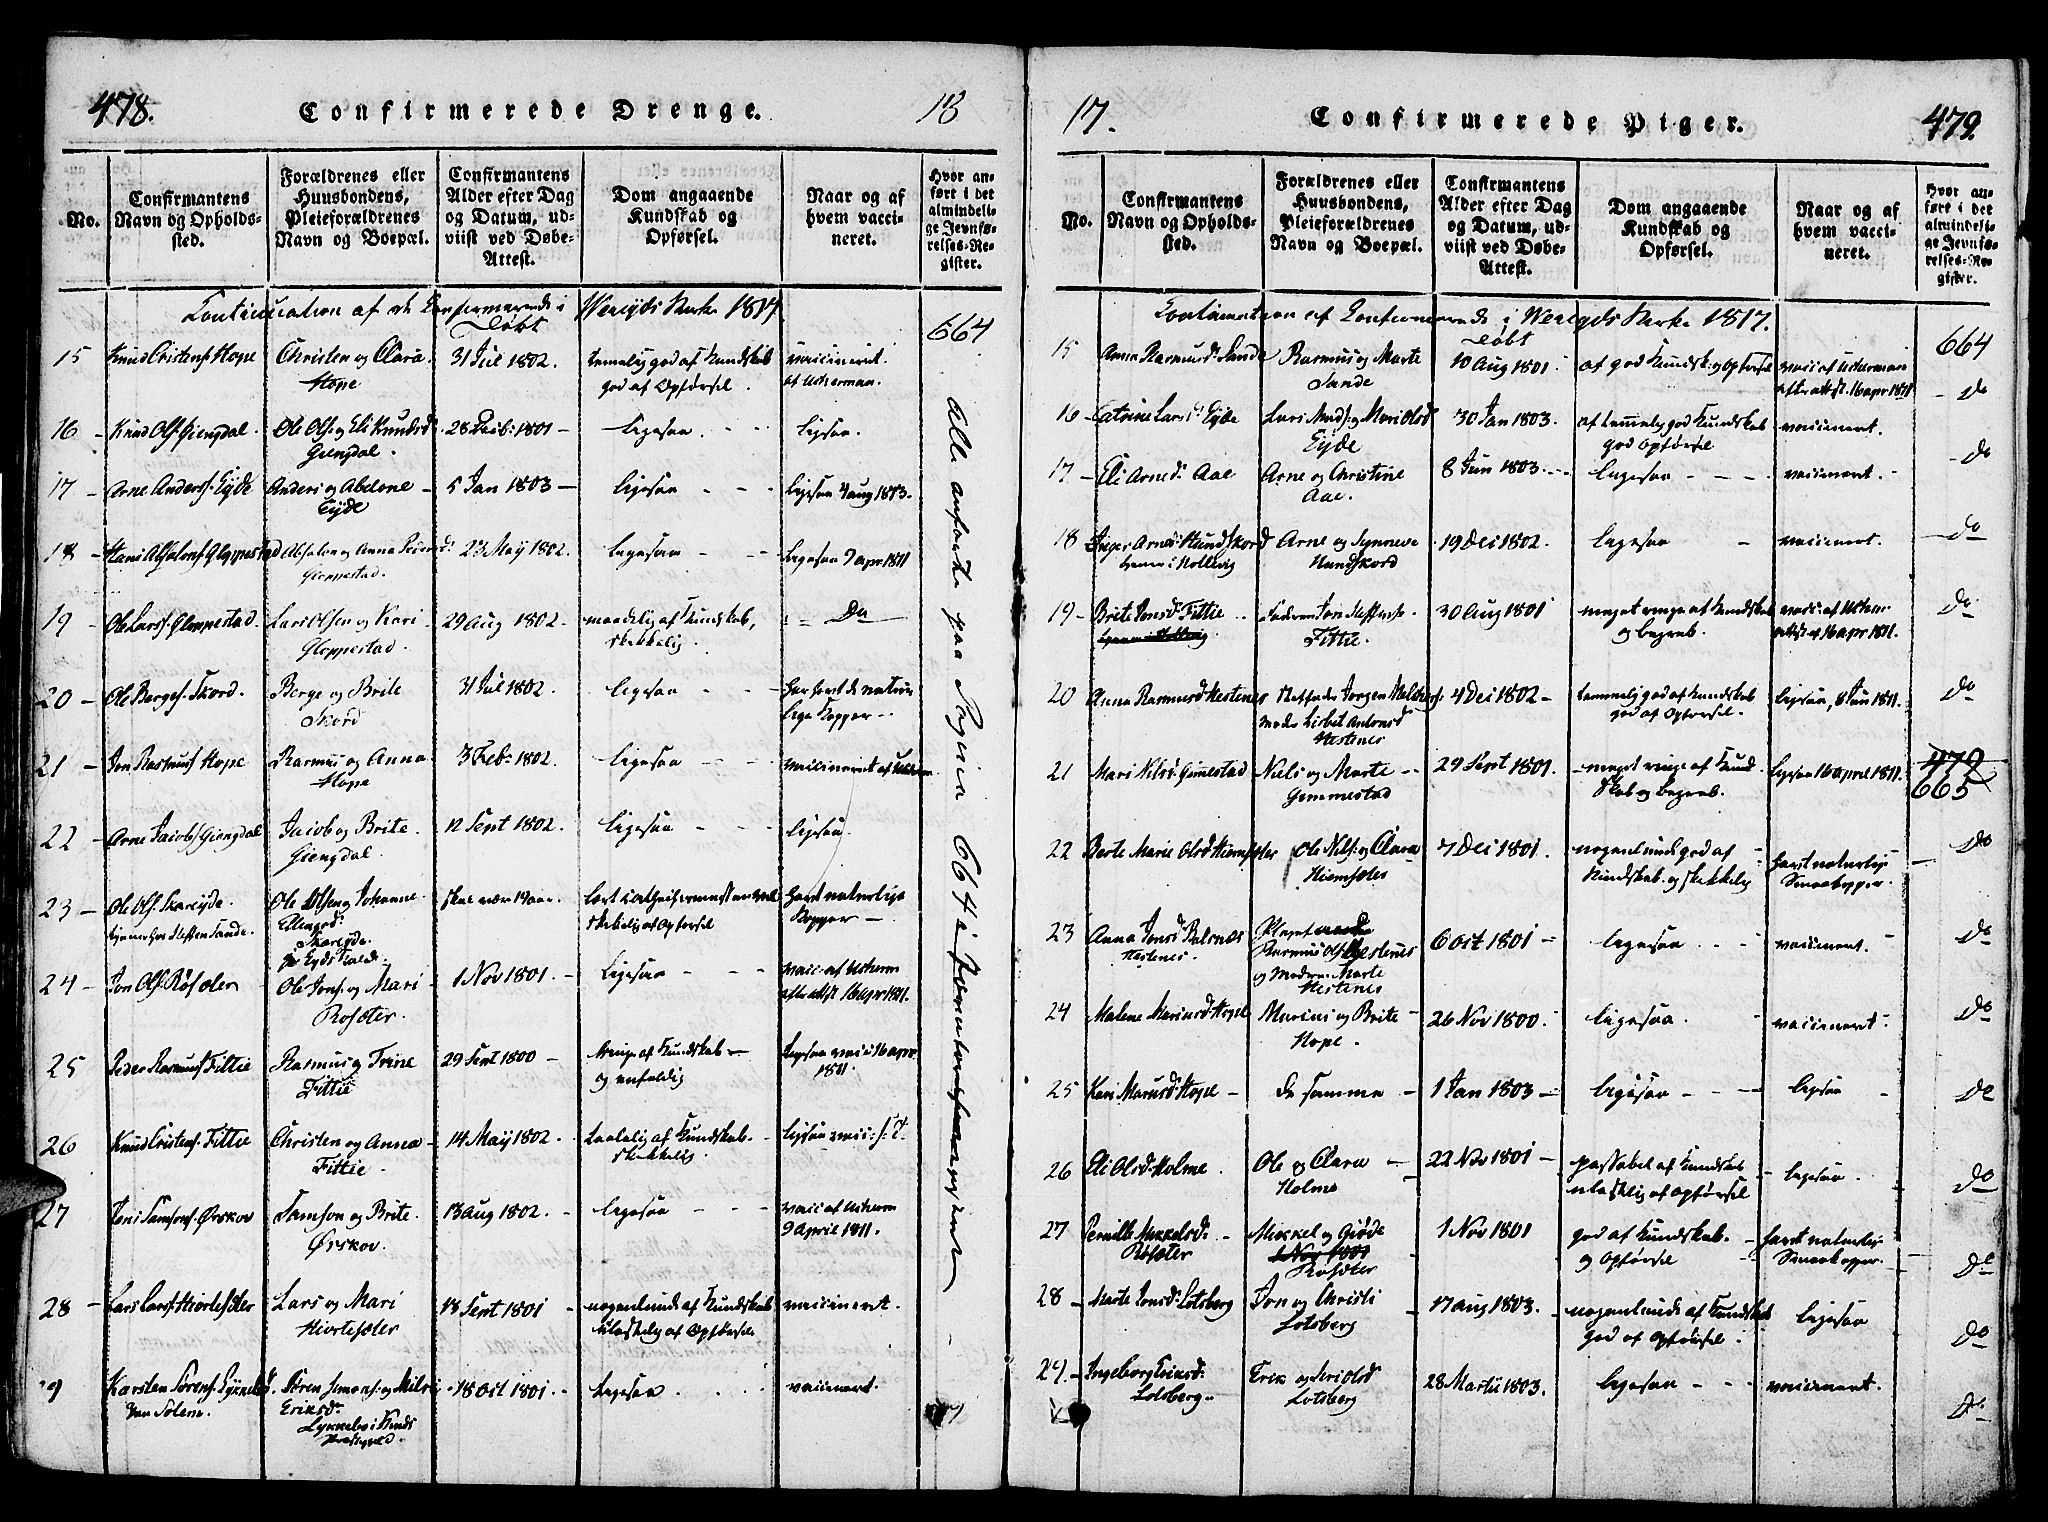 478.
Confirmerede Drenge.
18
No.
Confirmantens
Navn og Opholds-
sted.
Forældrenes eller
Huusbondens,
Pleieforældrenes
Navn og Boepæl.
Confirmantens
Alder efter Dag
og Datum, ud-
viist ved Døbe-
Attest.
Dom angaaende
Kundskab og
Opførsel.
Naar og af
hvem vacci-
neret.
Hvor an-
ført i det
almindeli-
ge Jevnfø-
relses-Re-
gister.
Continuation af de Confirmerede i Werejds Kerke 1817
Døbt
664
15 Knud Cristens. Hope Christen og Clara 31 Jul 1802. temelig god af Kundskab vaccineret
Hope god af Opførsel. af Ucherman.
16 Knud Ols. Giengdal. Ole Ols. og Eli Knudsd 28 Feb. 1801 ligesaa ligesaa.
Giengdal.
17 Arne Anders. Eyde Anders og Abelone 5 Jan 1803 ligesaa ligesaa 1813.
Eyde
18 Absalon og Anna 23 May 1802. ligesaa ligesaa 9 apr 1811
Gloppestad.
19 Ole Lars. Gloppestad. Lars Olsen og Kari 29 Aug 1802. maadelig af Kundskab, Do
Gloppestad. skikkelig.
20 Ole Berges. Skord. Berge og Brite 31 Jul 1802. ligesaa har havt de natur
Skord lige Kopper
21 Jon Rasmus. Hope Rasmus og Anna 3 Feb. 1802. ligesaa vaccineret af
Hope
22 Arne Jacobs. Giengdal Jacob og Brite 12 Sept 1802. ligesaa ligesaa.
Giengdal.
23 Ole Ols. Skareyde. Ole Olsen og Johanne skal være 19 aar. havt naturlige
tiener hos Sande. Ellingsd. skikkelig af Opførsel Kopper
Skareyde.
24 Jon Ols. Røsæter Ole Jons. og Mari 1 Nov 1801. ligesaa vacc. af Ucherm
Rosæter. efter attest 16 apr 1811.
25 Peder Rasmus. Fittie Rasmus og Trine 29 Sept 1800 ringe af Kundskab ligesaa vacc 16 apr
Fittie og enfoldig 1811.
26 Knud Cristens. Fittie Christen og Anna 14 May 1802. taalelig af Kundskab. ligesaa vacc:
Fittie. skikkelig.
27 Jens Samsons. Ørskov Samson og Brite 13 Aug 1802. ligesaa vacc af Ucherm
Ørskov. 9 April 1811.
28 Lars Lars. Hiortesæter Lars og Mari 18 Sept 1801 nogenlunde af Kundskab vaccineret.
Hiortesæter ulastelig af Opførsel
9 Karsten Sørens. Søren Simons. og 18 Oct 1801 ligesaa vaccineret.
Eriksd.
Lykkebo i
Alle anførte paa Pagina 664 i
17.
Confirmerede Piger.
479.
No.
Confirmantens
Navn og Opholds-
sted.
Forældrenes eller
Huusbondens,
Pleieforældrenes
Navn og Boepæl.
Confirmantens
Alder efter Dag
og Datum, ud-
viist ved Døbe-
Attest.
Dom angaaende
Kundskab og
Opførsel.
Naar og af
hvem vacci-
neret.
Hvor an-
ført i det
almindeli-
ge Jevnfø-
relses-Re-
gister.
Continuation af Confirmerede i Werejds Kerke 1817.
Døbt
664
15 Anna Rasmusd. Sande Rasmus og Marte 10 Aug 1801 af god Kundsk. og Opførsel vacc: af Ucherman
Sande efter attest. 16 apr 1811 Do
16 Catrine Larsd. Eyde Lars Mads. og Mari Olsd 30 Jan 1803. af temmelig god Kundskab vaccineret.
Eyde god Opførsel Do
17 Eli Arnesd. Aae Arne og Christine 8 Jun 1803. ligesaa vaccineret.
Aae. Do
18 Inger Arnesd. Hundskord Arne og Synneve 19 Dec 1802. ligesaa vaccineret.
Hundskord Do
19 Brite Jonsd. Fittie Faderen Jon 30 Aug 1801 meget ringe af Kundskab vacc: af Ucherm
Fittie. og begreb. attest af 16 apr 1811. Do
20 Anna Rasmusd. Hestenes Stiffader Jørgen 4 Dec 1802 temmelig god af Kundskab ligesaa, 8 Jun 1811.
Moder Lisbet Antonsd god af Opførsel. Do
Hestenes
21 Mari Nilsd. Gimestad Niels og Marte 29 Sept 1801. meget ringe af Kund ligesaa 16 april 1811. 479
Gimmestad skab og begreb. 665
22 Berte Marie Olsd. Ole Nils. og Clara 7 Dec 1801. nogenlunde god af havt naturlig Do
Kundskab. og skikkelig Smaakopper.
23 Anna Jonsd. Plejef. 6 Oct 1801 ligesaa vaccineret. Do
Hestenes Rasmus Ols. Hestenes
og Moder Marte
Hestenes
24 Malene Mariusd. Hope Marius og Brite 26 Nov 1800. ligesaa. vaccineret. Do
Hope.
25 Kari Mariusd. Hope de samme 1 Jan 1803 ligesaa ligesaa Do
26 Eli Olsd. Holme. Ole og Clara 22 Nov 1801 passabel af Kundskab ligesaa Do
Holme ulastelig af Opførsel
27 Pernille Mikkelsd. Mikkel og Giøde 1 Nov 1801 god af Kundskab. havt naturlig
Rosæter 1 Nov 1801 og Opførsel Smaakopper. Do
Rosæter
28 Marte Jonsd. Lotsberg Jon og Christi 17 Aug 1803. nogenlunde af Kundskab ligesaa
Lotsberg god af Opførsel. Do
29 Ingeborg Eriksd. Erik og Siri Olsd 28 Martii 1803. ligesaa vaccineret.
Lotsberg Lotsberg Do